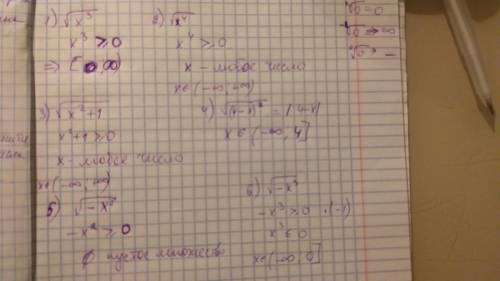 1) √x³
x³ ≥ 0
⇒ [0, ∞)
2) √x⁴
x⁴ ≥ 0
x - любое число
x ∈ (-∞, +∞)
3) √x²+1
x²+1 ≥ 0
x - любое число
x ∈ (-∞, ∞)
4) √(4-x)² = |4-x|
x ∈ (-∞, 4]
5) √-x²
-x² ≥ 0
∅ пустое множество
6) √-x³
-x³ ≥ 0 ·(-1)
x³ ≤ 0
x ∈ (-∞, 0]
√0 = 0